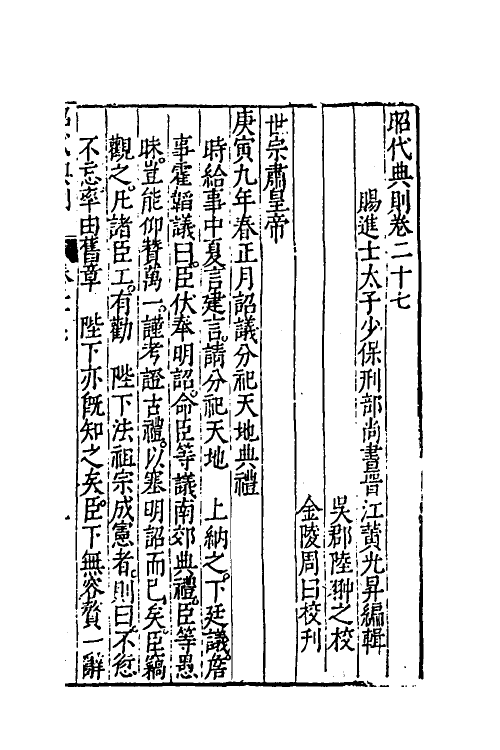 昭代典則卷二十七
賜進士太子少保刑部尚書晉江黃光昇編輯
吳郡陸翀之校
金陵周曰校刊
世宗肅皇帝
庚寅九年春正月詔議分祀天地典禮
時給事中夏言建言請分祀天地　上納之下廷議詹
事霍韜議曰臣伏奉明詔命臣等議南郊典禮臣等愚
昧豈能仰賛萬一謹考證古禮以塞明詔而已矣臣竊
觀之凡諸臣工有勸　陛下法祖宗成憲者則曰不愆
不忘率由舊章　陛下亦旣知之矣臣下無容贅一辭